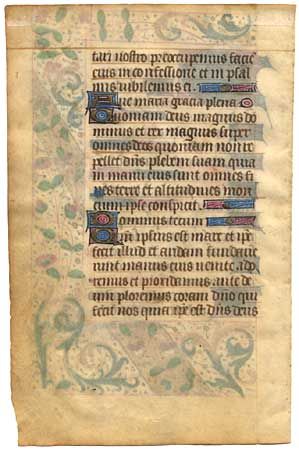 tari nostro preocupemus facie
eius in confessione et in psal
mis iubilemus ei.
Aue maria gracia plena
Quoniam deus magnus do
minus et rex magnus super
omnes deos quoniam non re
pellet dns plebem suam quia
in manu eius sunt omnes fi
nes terre et altitudines mon
cium ipse conspicit.
Dominus tecum
Quoniam ipsius est mare et ipse
fecit illud et aridam fundaue
runt manus eius venite ado
remus et procidamus ante de
um ploremus coram dno qui
fecit nos quia ipse est dns deus